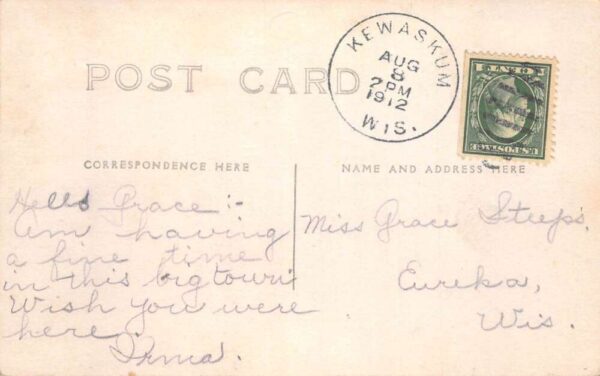 POST CARD
KEWASKUM
AUG
8
2 PM
1912
WIS.
U.S. POSTAGE
CORRESPONDENCE HERE
NAME AND ADDRESS HERE
Hello Grace :-
Am having
a fine time
in this big town
Wish you were
here.
Irma.
Miss Grace Steeps.
Eureka,
Wis.